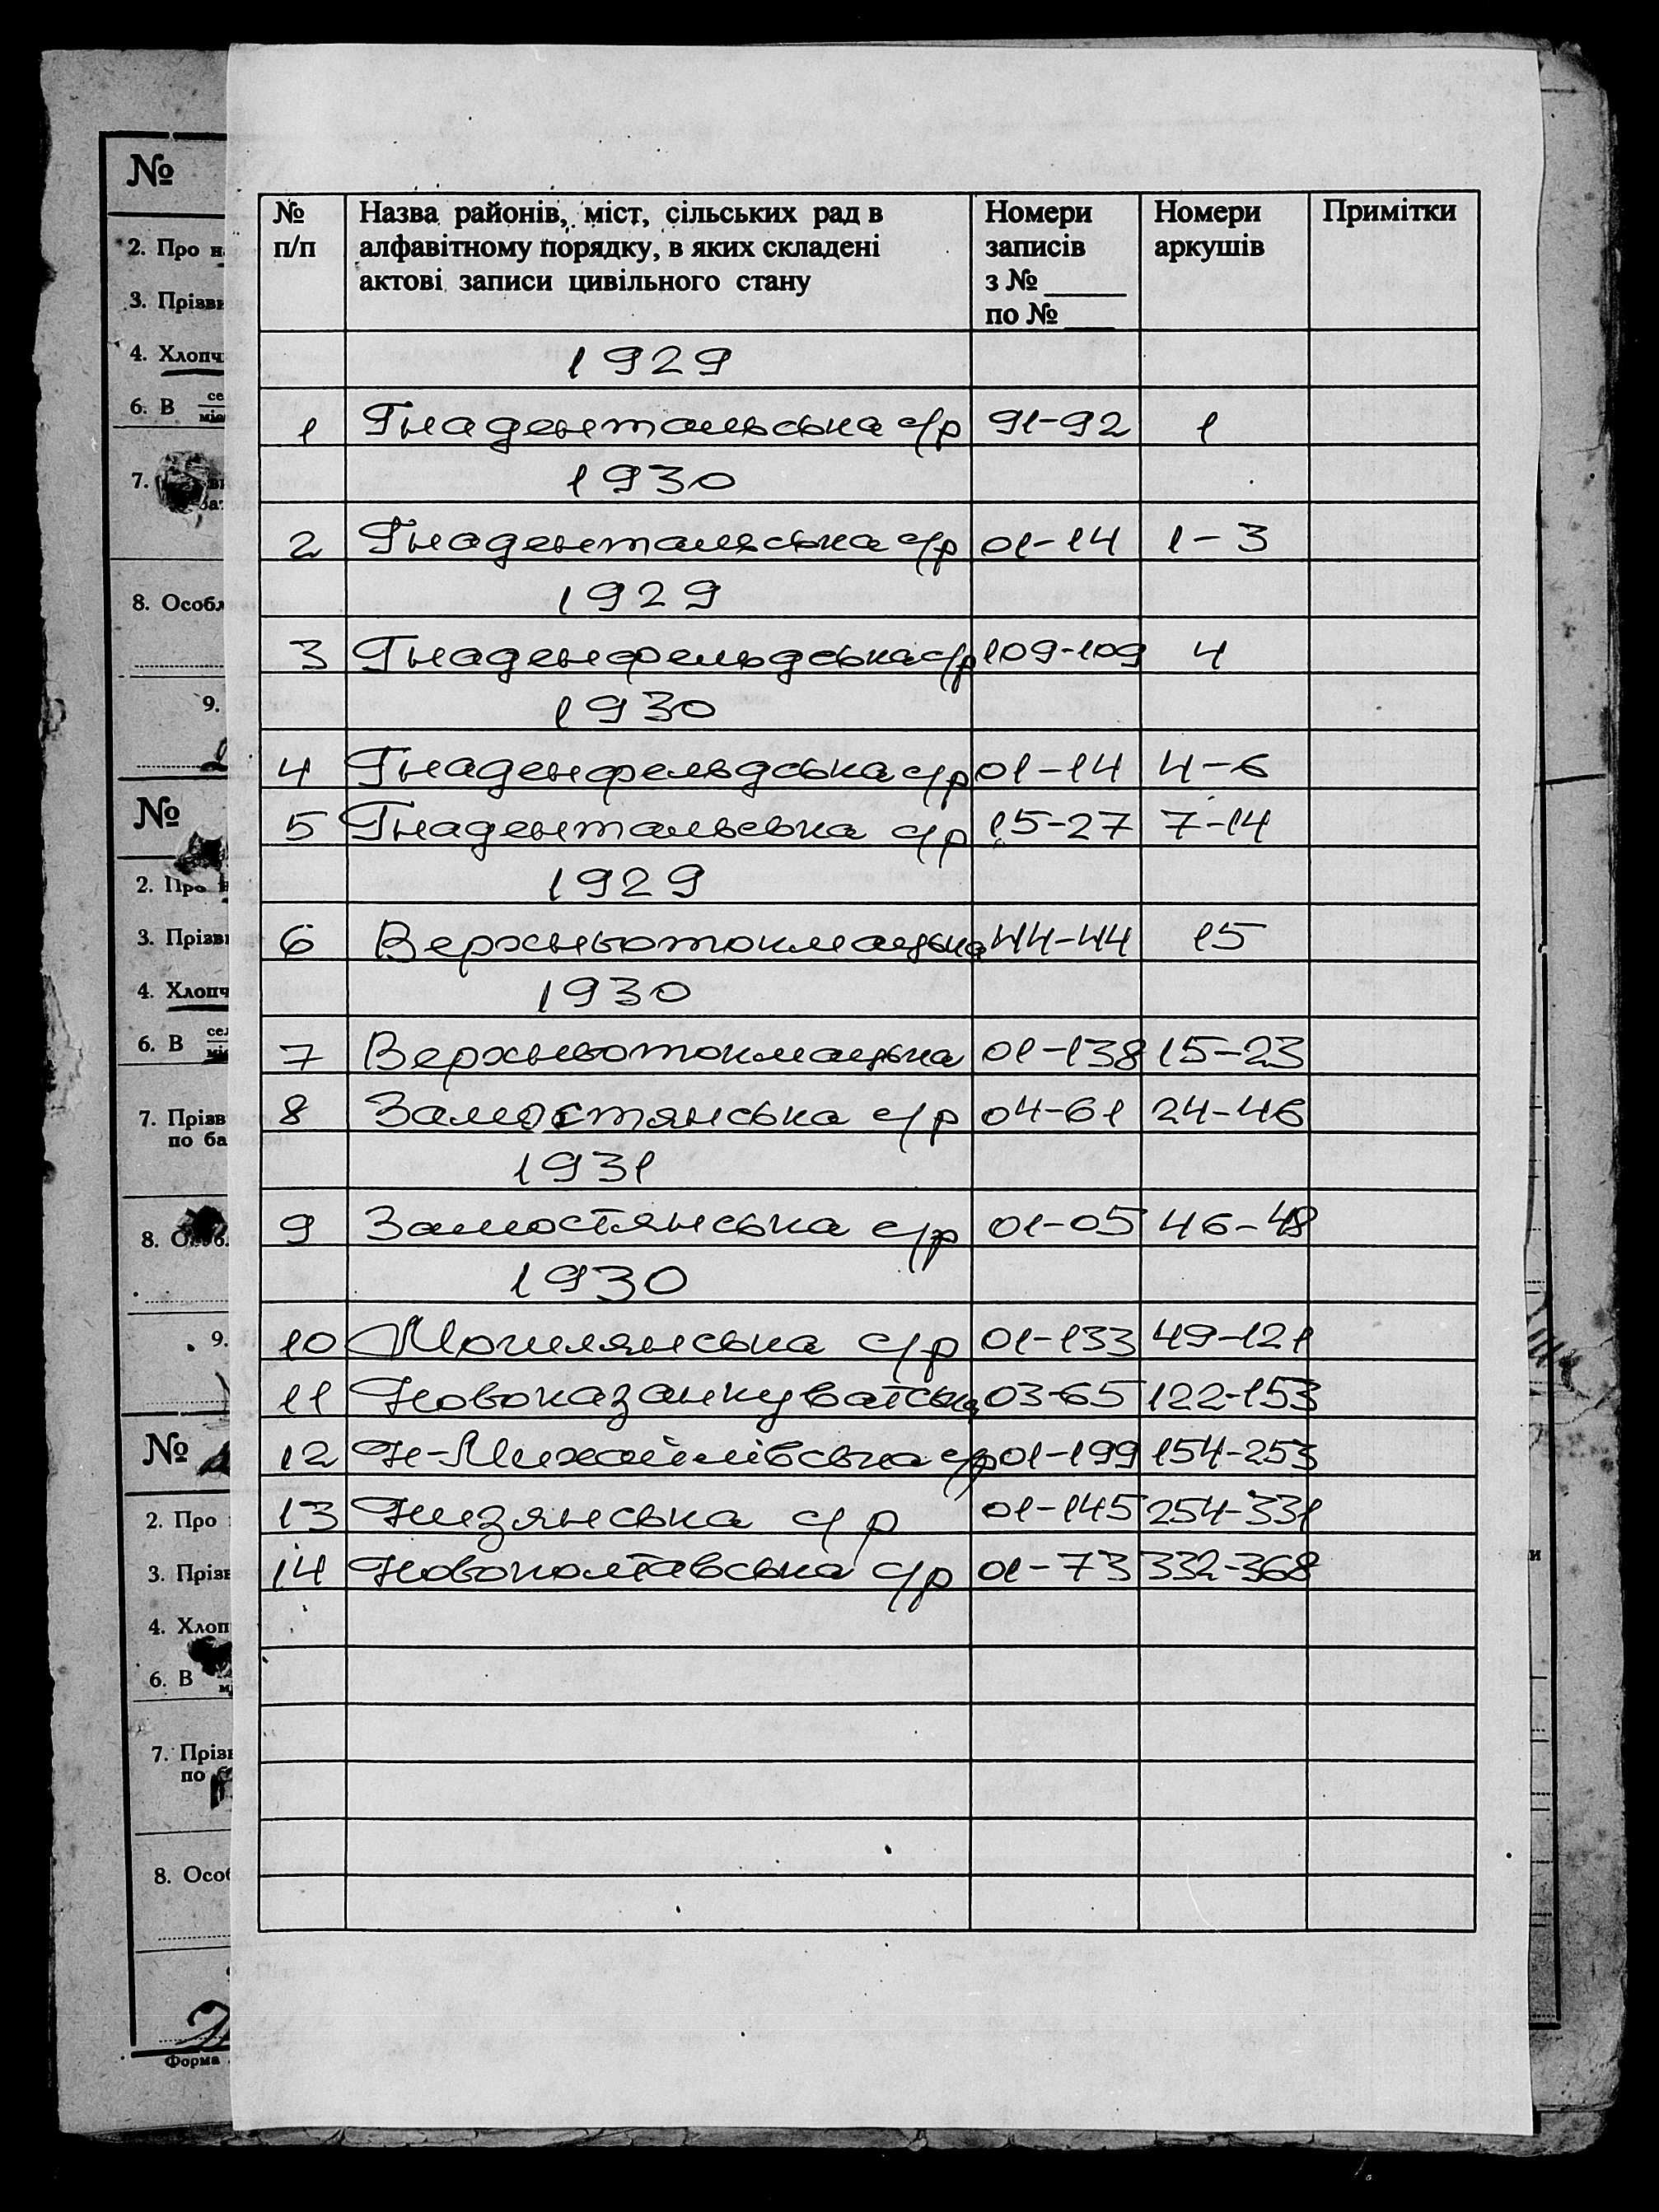 № п/п Назва районів, міст, сільських рад в алфавітному порядку, в яких складені актові записи цивільного стану Номери записів з № ____ по № ____ Номери аркушів Примітки
1929
1 Гнадентальська с/р 91-92 1
1930
2 Гнадентальська с/р 01-14 1-3
1929
3 Гнаденфельдська с/р 109-109 4
1930
4 Гнаденфельдська с/р 01-14 4-6
5 Гнадентальська с/р 15-27 7-14
1929
6 Верхньотокмацька 44-44 15
1930
7 Верхньотокмацька 01-138 15-23
8 Замостянська с/р 04-61 24-46
1931
9 Замостянська с/р 01-05 46-48
1930
10 Могилянська с/р 01-133 49-121
11 Новоказанкуватська 03-65 122-153
12 Н-Михайлівська с/р 01-199 154-253
13 Низянська с/р 01-145 254-331
14 Новополтавська с/р 01-73 332-368
№
2. Про
3. Прізв
4. Хлопч
6. В
7.
8. Особл
9.
№
2. Про
3. Прізв
4. Хлопч
6. В
7. Прізв
по ба
8. Особ.
9.
№
2. Про
3. Прізв
4. Хлоп
6. В
7. Прізв
по б
8. Особ
Форма